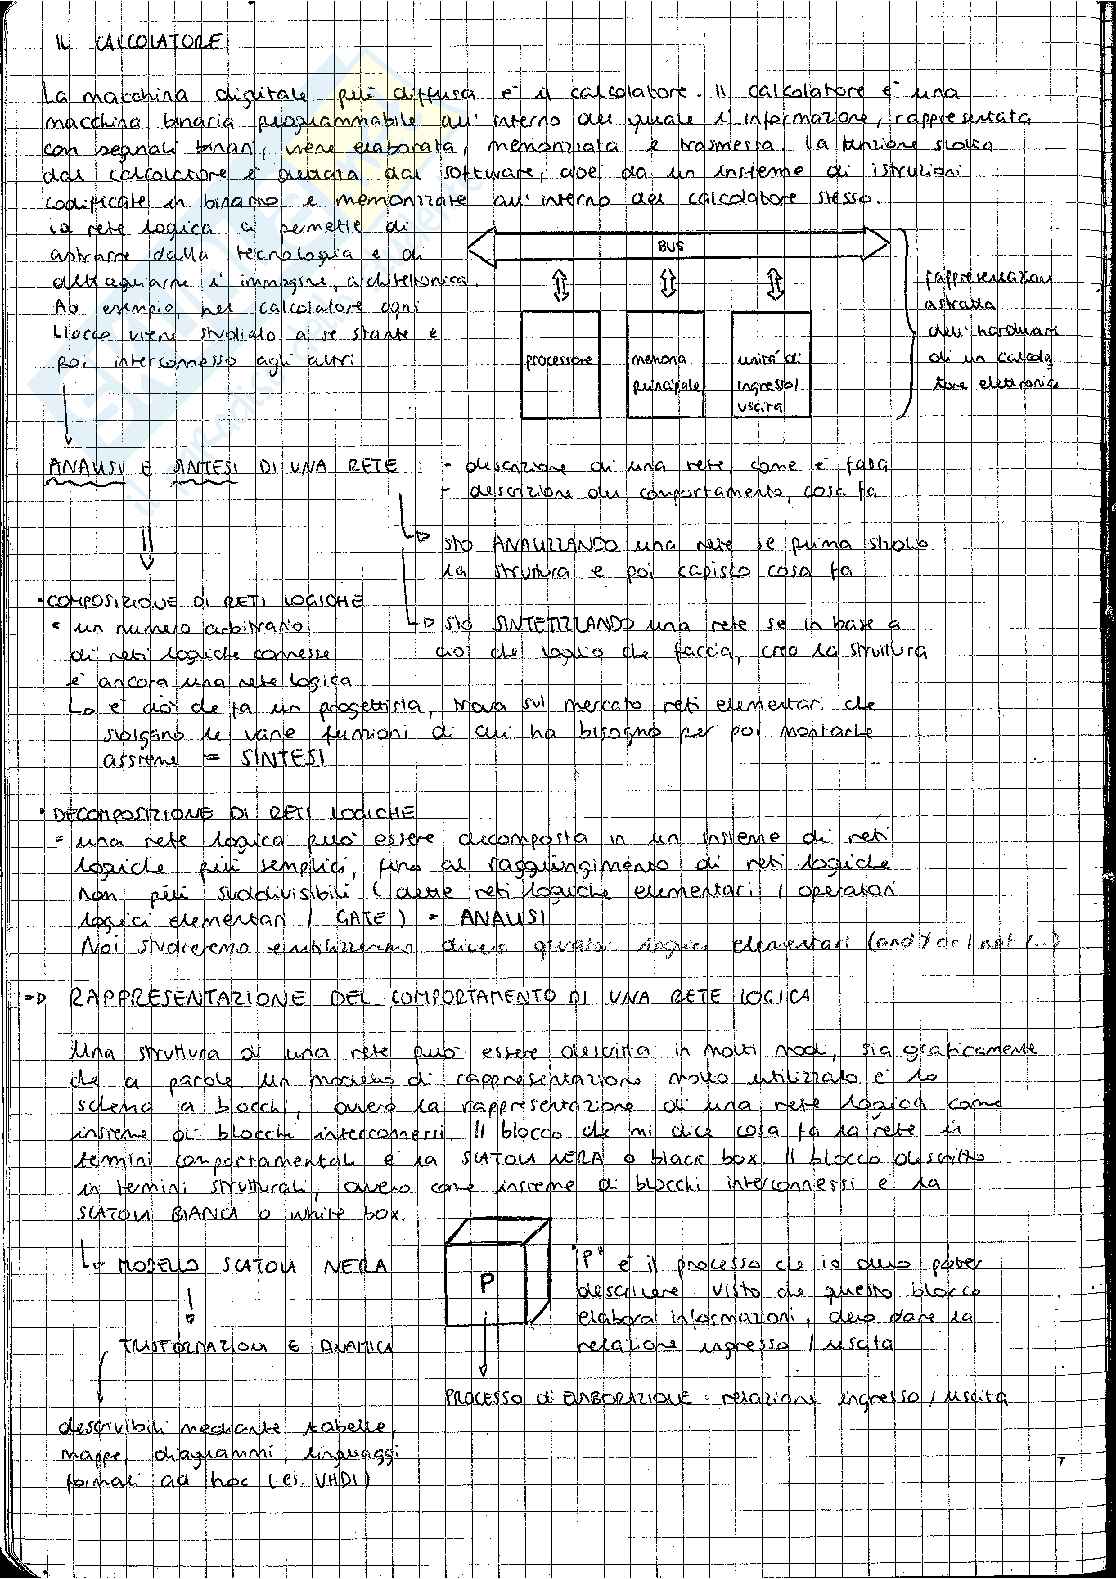 IL CALCOLATORE
La macchina digitale più diffusa è il calcolatore. Il calcolatore è una
macchina binaria programmabile all'interno del quale l'informazione, rappresentata
con segnali binari, viene elaborata, memorizzata e trasmessa. La funzione svolta
dal calcolatore è dettata dal software, cioè da un insieme di istruzioni
codificate in binario e memorizzate all'interno del calcolatore stesso.
La rete logica ci permette di
astrarre dalla tecnologia e di
dettagliarne l'immagine architettonica.
Ad esempio, nel calcolatore ogni
blocco viene studiato a se stante e
poi interconnesso agli altri
BUS
processore
memoria
principale
unità di
ingresso/
uscita
rappresentazione
astratta
dell'hardware
di un calcola
tore elettronico
ANALISI E SINTESI DI UNA RETE : - descrizione di una rete, come è fatta
- descrizione del comportamento, cosa fa
sto ANALIZZANDO una rete se prima studio
la struttura e poi capisco cosa fa
• COMPOSIZIONE DI RETI LOGICHE
= un numero arbitrario
di reti logiche connesse
è ancora una rete logica
sto SINTETIZZANDO una rete se in base a
ciò che voglio che faccia, creo la struttura
è ciò che fa un progettista, trova sul mercato reti elementari che
svolgano le varie funzioni di cui ha bisogno per poi montarle
assieme = SINTESI
• DECOMPOSIZIONE DI RETI LOGICHE
= una rete logica può essere dicomposta in un insieme di reti
logiche più semplici, fino al raggiungimento di reti logiche
non più suddivisibili (dette reti logiche elementari / operatori
logici elementari / GATE) = ANALISI
Noi studieremo e utilizzeremo diversi logici elementari (and / or / not /...)
=> RAPPRESENTAZIONE DEL COMPORTAMENTO DI UNA RETE LOGICA
Una struttura di una rete può essere descritta in molti modi, sia graficamente
che a parole. Un modello di rappresentazione molto utilizzato è lo
schema a blocchi, ovvero la rappresentazione di una rete logica come
insieme di blocchi interconnessi. Il blocco che mi dice cosa fa la rete in
termini comportamentali è la SCATOLA NERA o black box. Il blocco descritto
in termini strutturali, ovvero come insieme di blocchi interconnessi è la
SCATOLA BIANCA o white box.
MODELLO SCATOLA NERA
P
"P" è il processo che io devo poter
descrivere. Visto che questo blocco
elabora informazioni, devo dare la
relazione ingresso / uscita
TRASFORMAZIONI E DINAMICA
PROCESSO di ELABORAZIONE : relazione ingresso / uscita
descrivibili mediante tabelle,
mappe, diagrammi, linguaggi
formali ad hoc (es. VHDL)